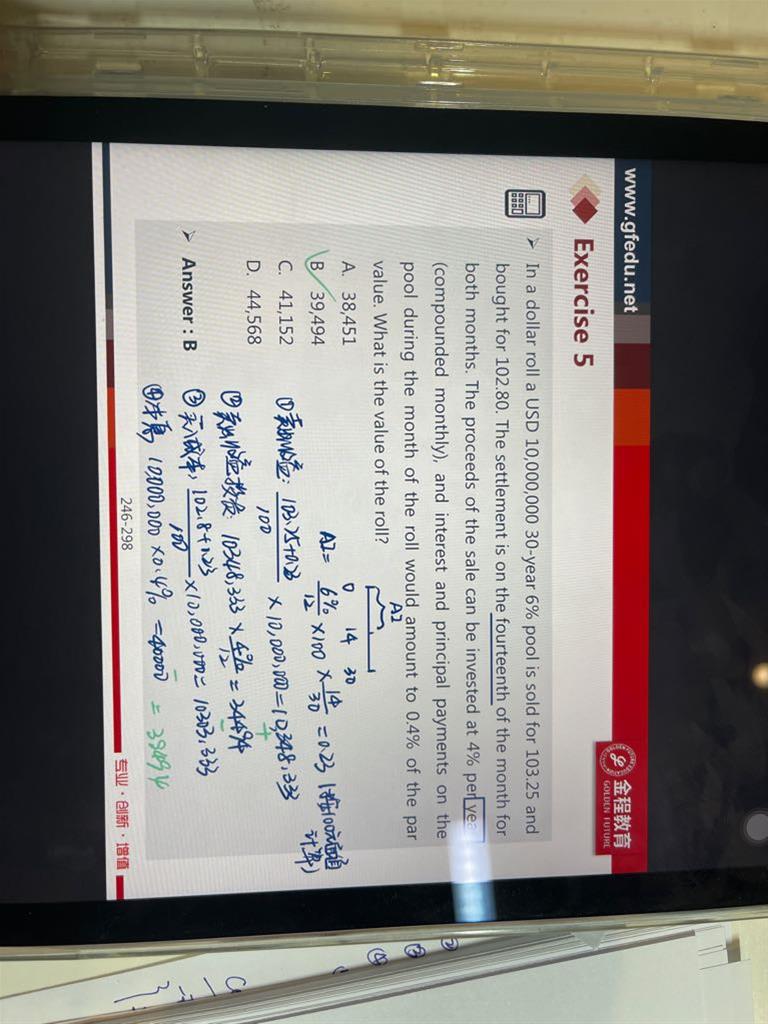 www.gfedu.net
金程教育
GOLDEN FUTURE
Exercise 5
➢ In a dollar roll a USD 10,000,000 30-year 6% pool is sold for 103.25 and
bought for 102.80. The settlement is on the fourteenth of the month for
both months. The proceeds of the sale can be invested at 4% per year
(compounded monthly), and interest and principal payments on the
pool during the month of the roll would amount to 0.4% of the par
value. What is the value of the roll?
AI
0 14 30
A. 38,451
B 39,494
C. 41,152
D. 44,568
AI = 6%/12 × 100 × 14/30 = 0.23
计算)
① 103.25+0.23/100 × 10,000,000 = 10,348,333
+
② 10348,333 × 4%/12 = 34494
➢ Answer : B
③ 买入成本: 102.8+0.23/100 × 10,000,000 = 10303,333
④ 本息 10000,000 × 0.4% = 40000 = 39494
246-298
专业·创新·增值
②
③
④